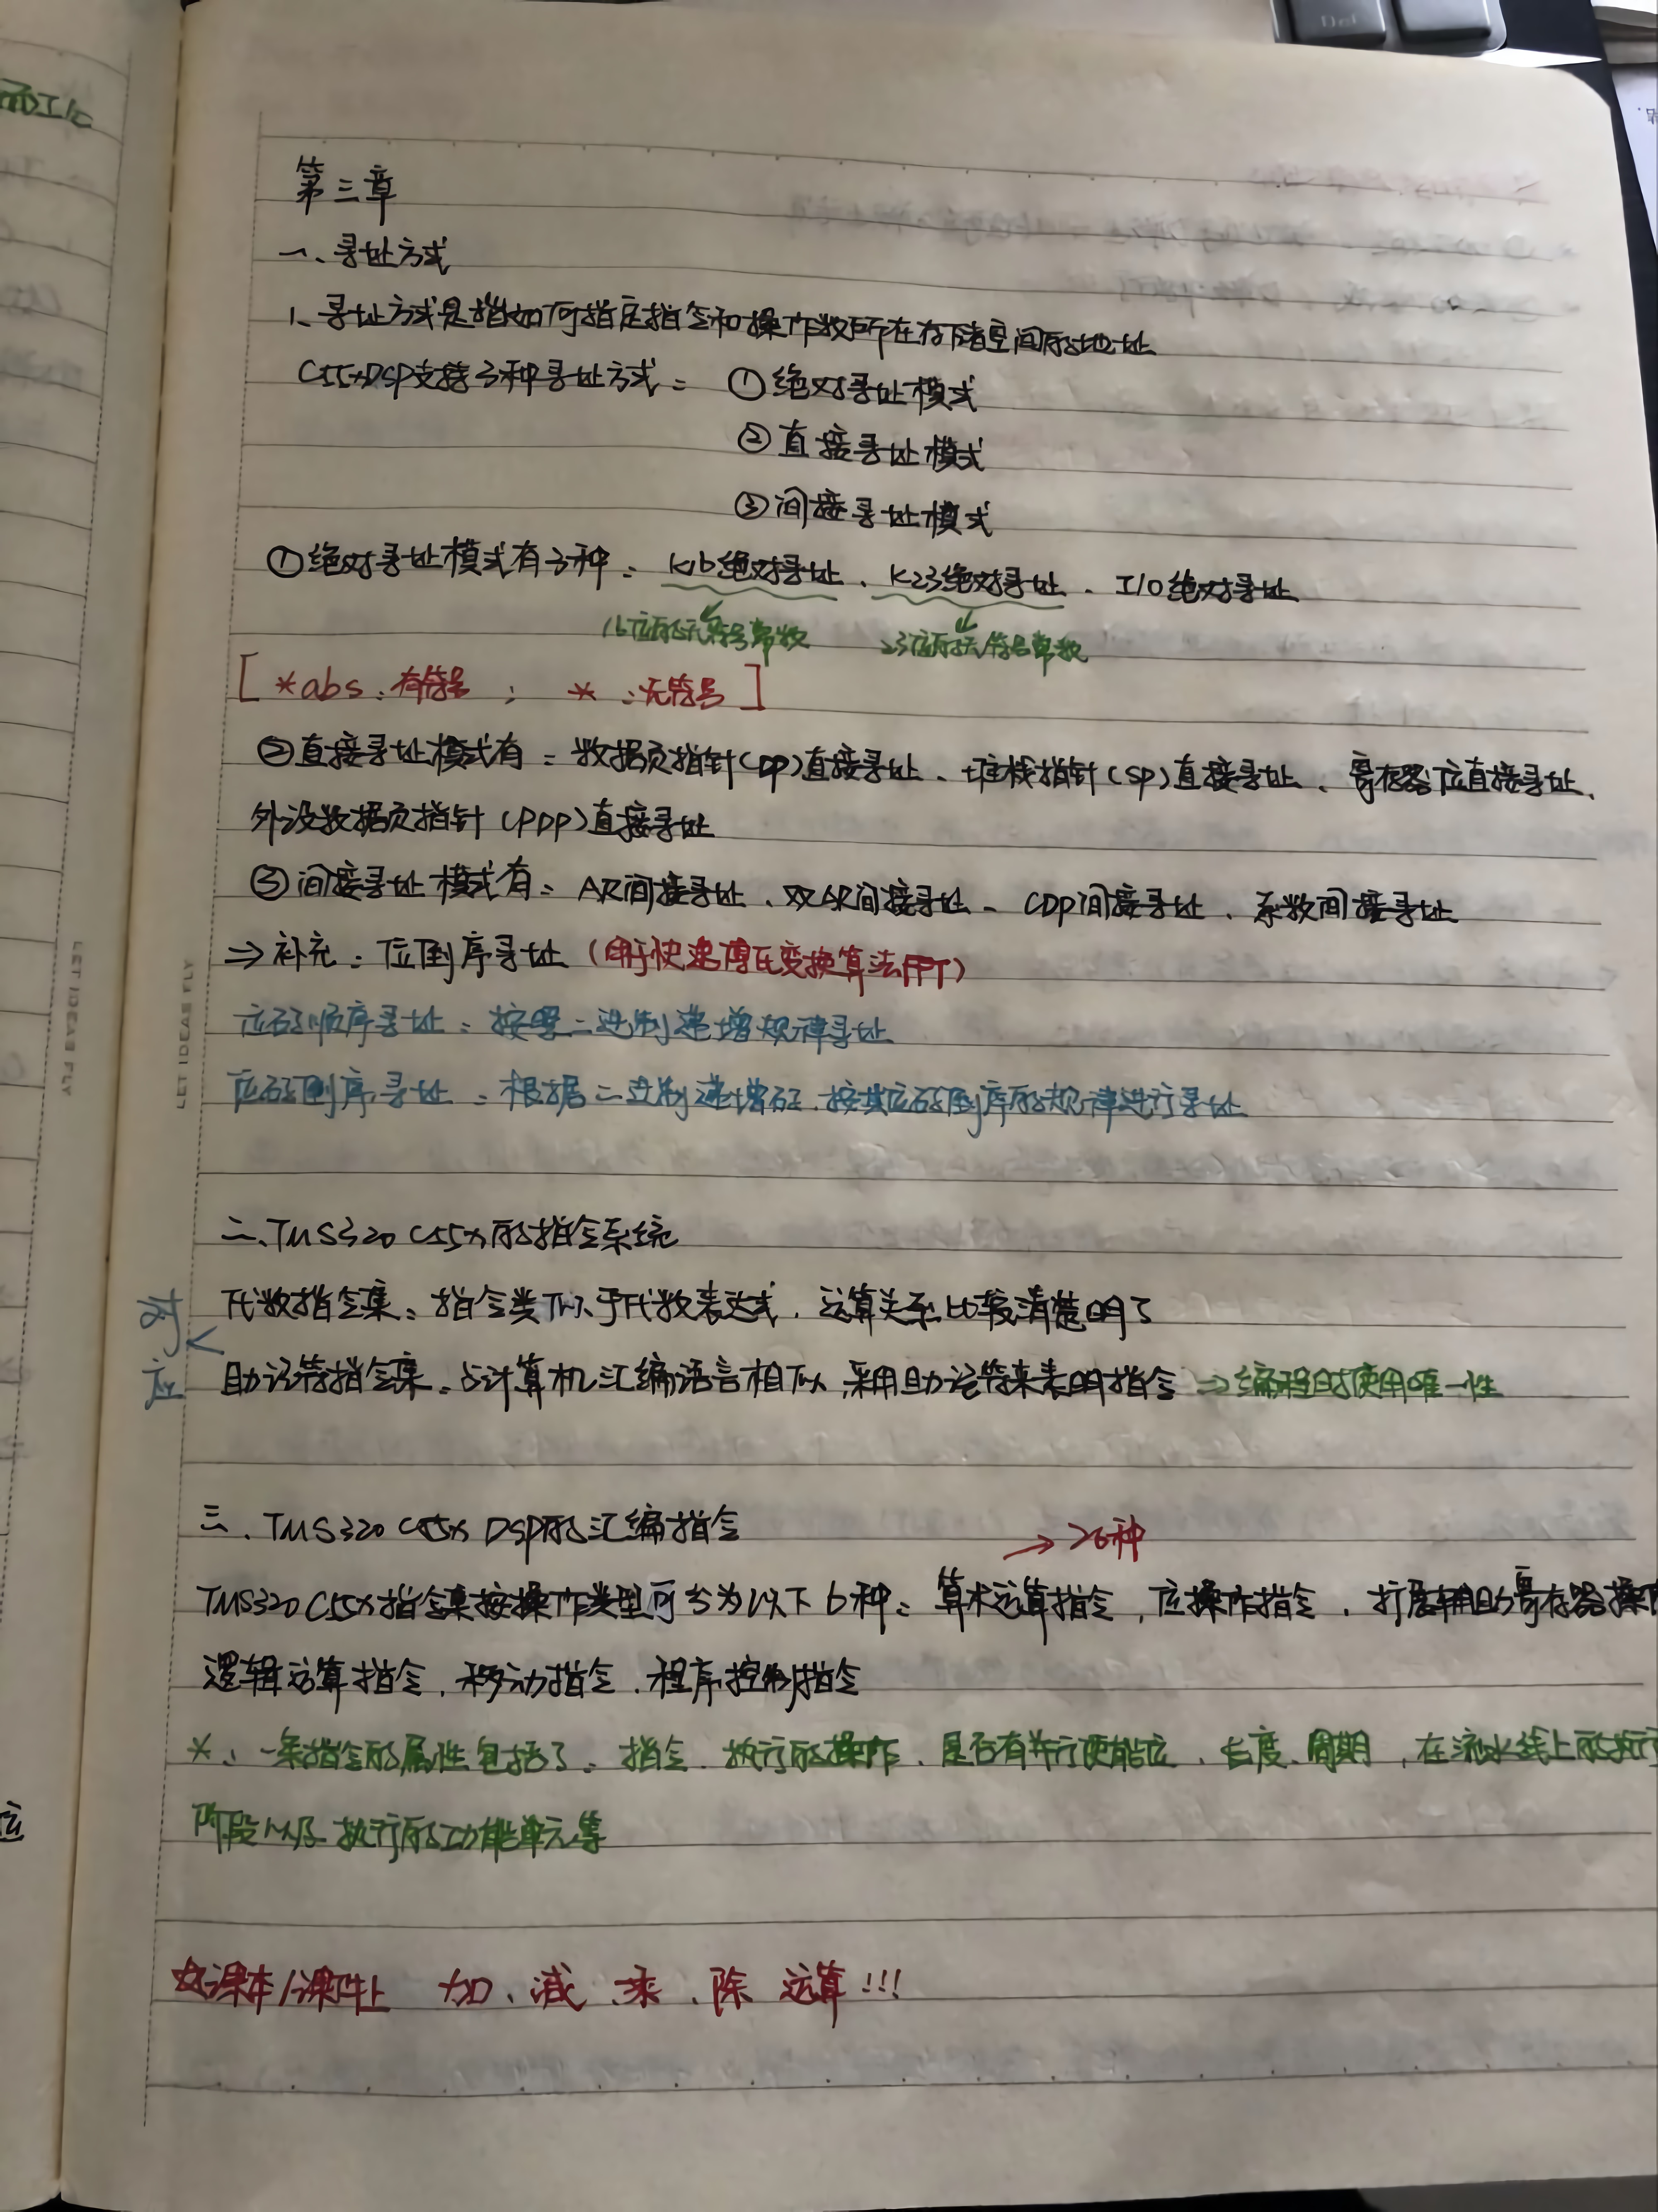 第三章
一、寻址方式
1、寻址方式是指如何指定指令和操作数所在存储空间的地址
C55xDSP支持3种寻址方式： ①绝对寻址模式
②直接寻址模式
③间接寻址模式
①绝对寻址模式有3种：K16绝对寻址、K23绝对寻址、I/O绝对寻址
16位的无符号常数 23位的无符号常数
[ *abs：有符号 ； * ：无符号 ]
②直接寻址模式有：数据页指针(DP)直接寻址、堆栈指针(SP)直接寻址、寄存器位直接寻址、
外设数据页指针(PDP)直接寻址
③间接寻址模式有：AR间接寻址、双AR间接寻址、CDP间接寻址、系数间接寻址
⇒补充：位倒序寻址（用于快速傅氏变换算法FFT）
位码顺序寻址：按照二进制递增规律寻址
位码倒序寻址：根据二进制递增码，按其位码倒序的规律进行寻址
二、TMS320 C55x的指令系统
代数指令集：指令类似于代数表达式，运算关系比较清楚明了
对应
助记符指令集：与计算机汇编语言相似，采用助记符来表明指令 ⇒编程时使用唯一性
三、TMS320 C55x DSP的汇编指令
→ >6种
TMS320 C55x指令集按操作类型可分为以下6种：算术运算指令，位操作指令，扩展辅助寄存器操作
逻辑运算指令，移动指令，程序控制指令
*、一条指令的属性包括了：指令、执行的操作、是否有并行使能位、长度、周期，在流水线上的执行
阶段以及执行的功能单元等
☆课本/课件上 加、减、乘、除 运算!!!
LET IDEAS FLY
LET IDEAS FLY
Del
位